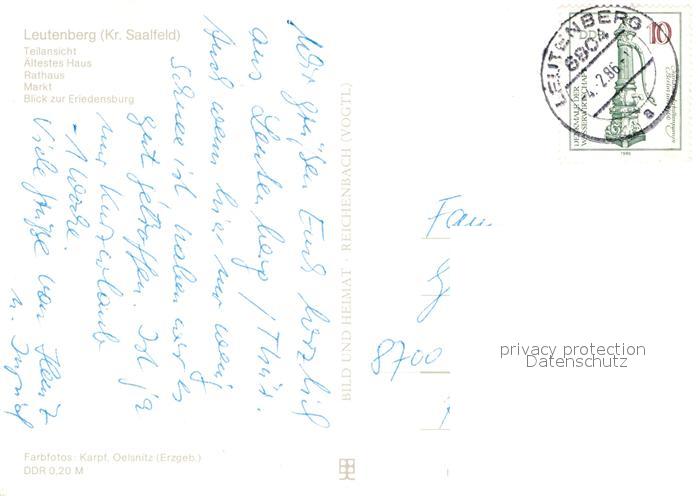 Leutenberg (Kr. Saalfeld)
Teilansicht
Ältestes Haus
Rathaus
Markt
Blick zur Friedensburg
Wir grüßen Euch herzlich
aus Leutenberg / Thür.
Auch wenn hier nur wenig
Schnee ist haben wir es
gut getroffen. Ist ja
nur Kurzurlaub
- 1 Woche.
Viele Grüße von
u. Ingrid
BILD UND HEIMAT · REICHENBACH (VOGTL)
Farbfotos: Karpf, Oelsnitz (Erzgeb.)
DDR 0,20 M
LEUTENBERG
6804
-4.-2.86.-
a
DDR
10
DENKMALE DER
WASSERWIRTSCHAFT
1986
Fam
8700
privacy protection
Datenschutz